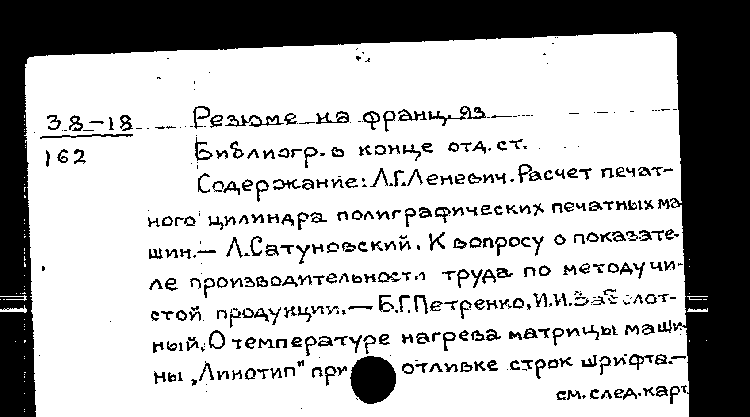 38-18 Резюме на франц. яз.
162 Библиогр. в конце отд. ст.
Содержание: Л.Г.Леневич. Расчет печат-
ного цилиндра полиграфических печатных ма
шин.— Л.Сатуновский. К вопросу о показате-
ле производительности труда по методу чи-
стой продукции.— Б.Г.Петренко, И.И.Заболот-
ный. О температуре нагрева матрицы маши-
ны „Линотип" при отливке строк шрифта.—
см. след. карт